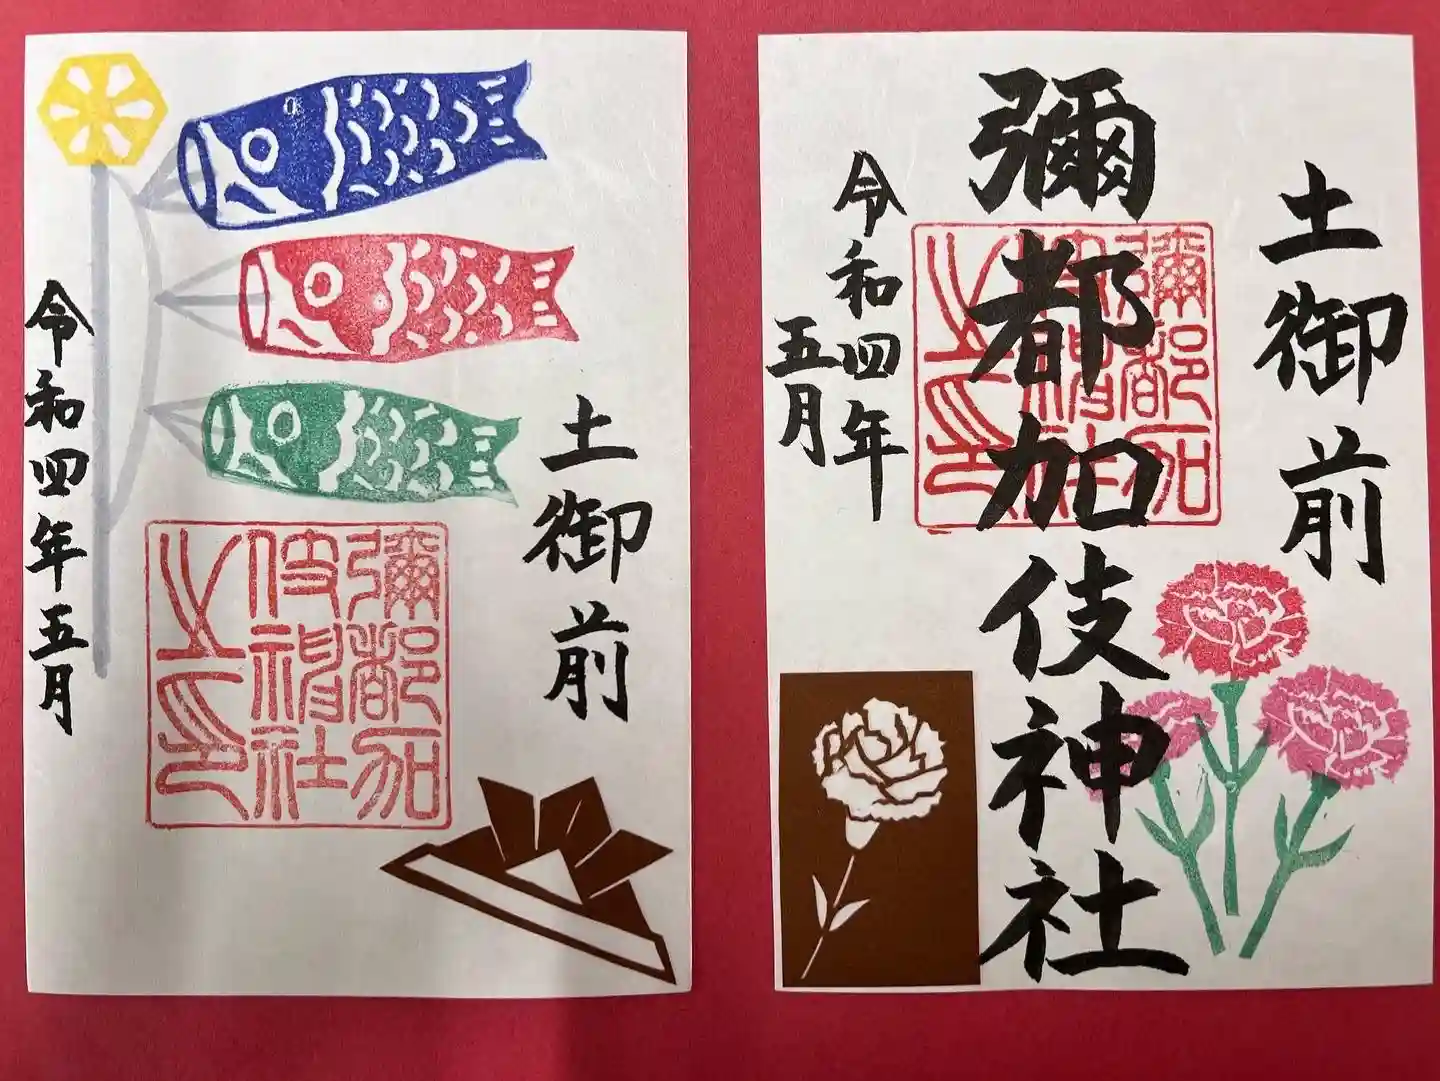 土御前
彌都加伎神社之印
令和四年五月
土御前
彌都加伎神社
彌都加伎神社之印
令和四年
五月